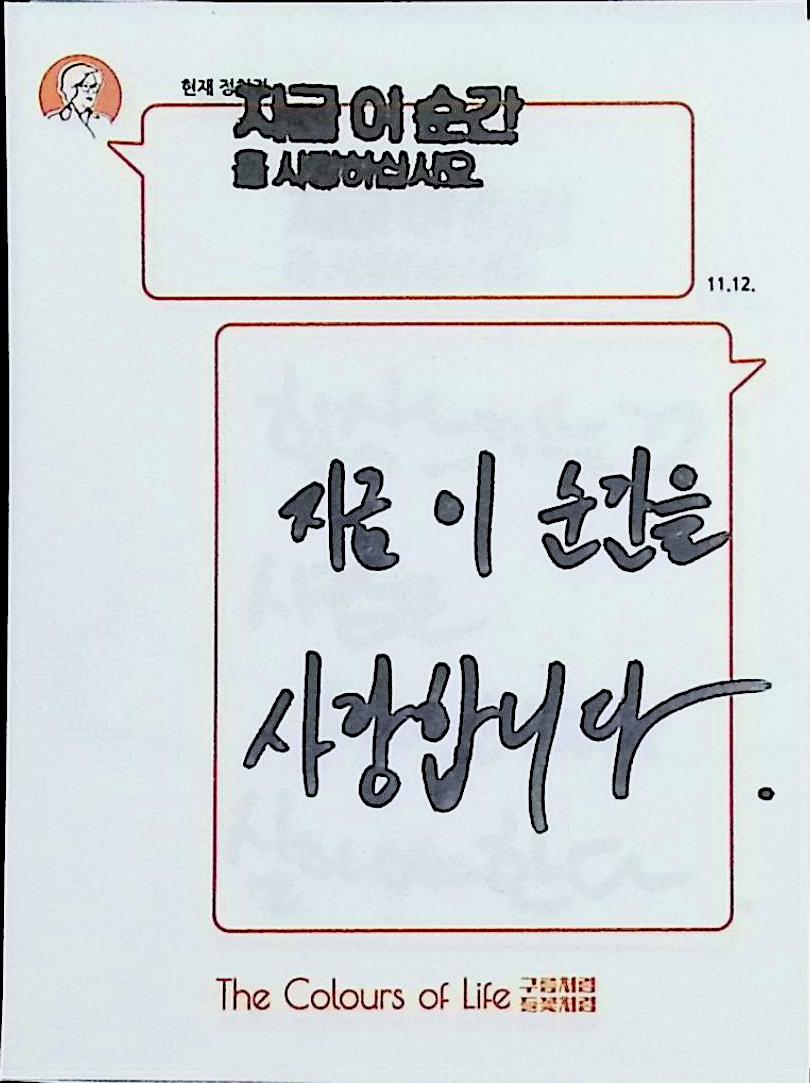 현재
지금 이 순간
을 사랑하십시요
11.12.
지금 이 순간을
사랑합니다.
The Colours of Life 구름처럼
들꽃처럼